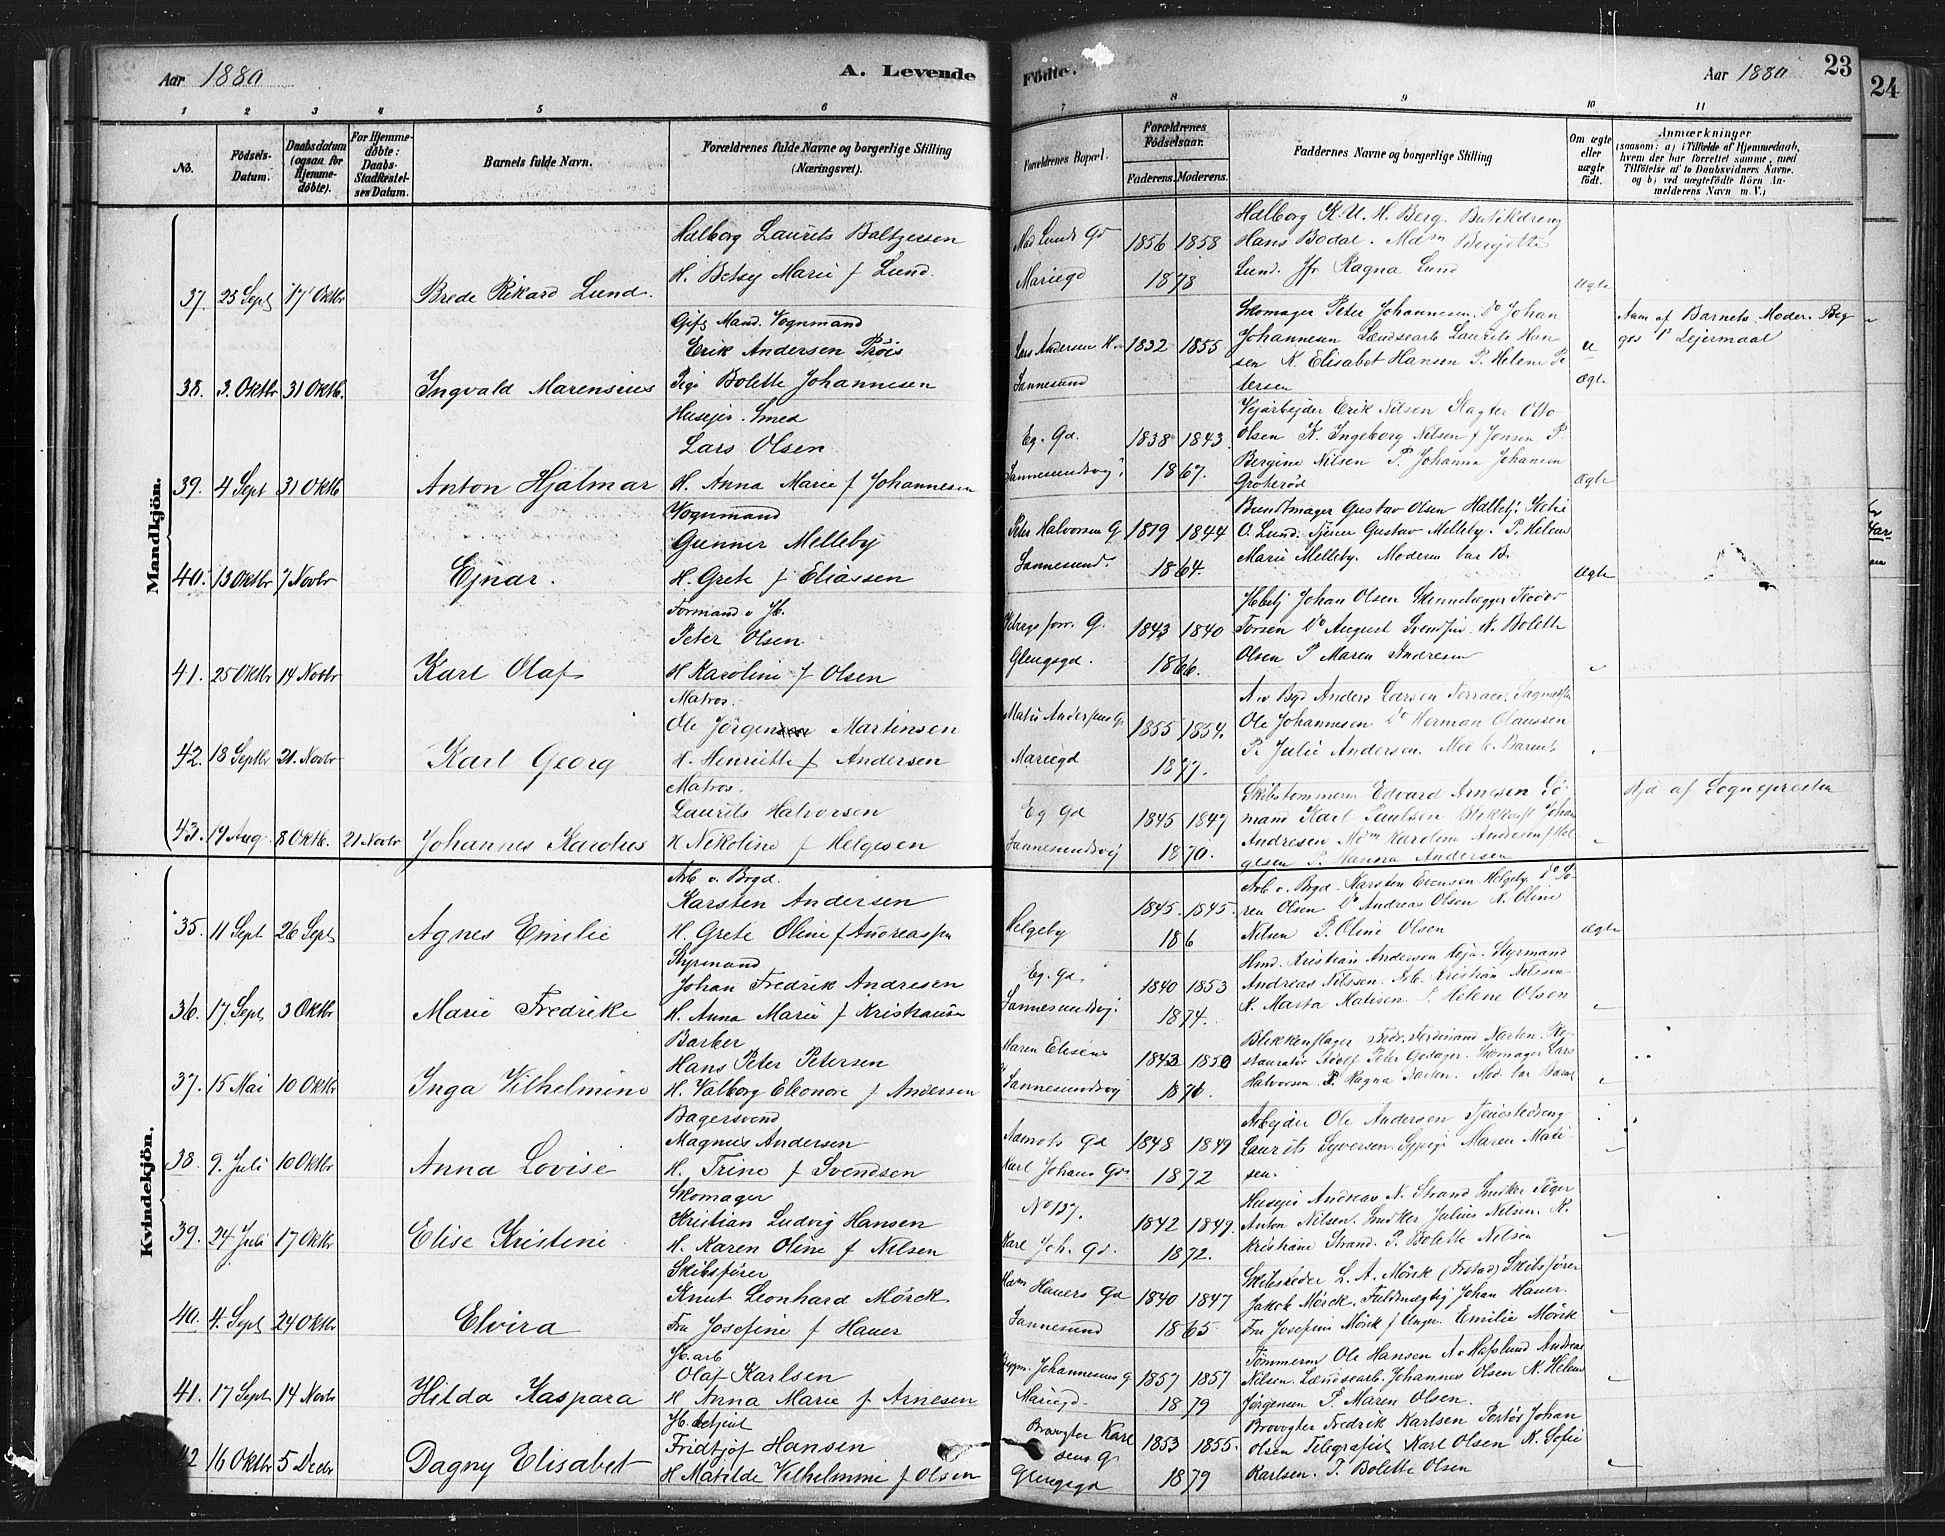 Aar 1880
A. Levende
Fødte.
Aar 1880
23
24
1 2 3 4 5 6 7 8 9 10 11
No.
Fødsels-
Datum.
Daabsdatum
(ogsaa for
Hjemme-
døbte).
For Hjemme-
døbte:
Daabs-
Stadfæstel-
ses Datum.
Barnets fulde Navn.
Forældrenes fulde Navne og borgerlige Stilling
(Næringsvei).
Forældrenes Bopæl.
Forældrenes
Fødselsaar.
Faderens. Moderens.
Faddernes Navne og borgerlige Stilling
Om ægte
eller
uægte
født.
Anmærkninger
(saasom: a) i Tilfælde af Hjemmedaab,
hvem der har forrettet samme, med
Tilføielse af to Daabsvidners Navne,
og b) ved uægtefødte Børn An-
melderens Navn m. V.)
Mandkjön.
37. 25 Sept 17 Oktbr Brede Rikard Lund.
Halborg Laurits Baltzersen
H. Betsy Marie f Lund.
Mad Lunds Gd
Mariegd
1856 1858
1878
Halborg K. U. H. Berg. Butikdreng
Hans Bodal. Mdm Bergitte
Lund. Jfr Ragna Lund
Ægte
38. 3. Oktbr 31 Oktb. Ingvald Marensius
Gift Mand. Vognmand
Erik Andersen Prøis
Pige Bolette Johannesen
Lars Andersen H
Sannesund
1832 1855
Skomager Peter Johannesen. Do Johan
Johannesen Landsearb Laurits Han-
sen K. Elisabet Hansen P. Helene Pe-
tersen
U
Ægte
Anm af Barnets Moder. Beg-
ges 1ste Lejermaal
39. 4 Sept 31 Oktb Anton Hjalmar
Husejer. Smed
Lars Olsen
H. Anna Marie f Johannesen
Eg. Gd.
Sannesundsvej
1838 1843
1867.
Vejarbejder Erik Nilsen Slagter Otto
Olsen K. Ingeborg Nilsen f Jensen P.
Bergine Nilsen P. Johanna Johansen
Grøterød
Ægte
40. 13 Oktbr 7 Novbr Ejnar.
Vognmand
Gunner Melleby
H. Grete f Eliassen
Peter Halvorsen G
Sannesund.
1819 1844
1864.
Bundtmager Gustav Olsen
O. Lund. Tjener Gustav Melleby. P. Helene
Marie Melleby. Moderen bar B.
Ægte
41. 25 Oktbr 14 Novbr Karl Olaf
Formand v Jb.
Peter Olsen
H Karoline f Olsen
Glengsgd.
1843 1840
1866.
Johan Olsen
Do August Svendsen K. Bolette
Olsen P Maren Andresen
"
42. 18 Septbr 21. Novbr Karl Georg
Matros.
Ole Jörgen Martinsen
H. Henriette f Andersen
Mariegd
1855 1854.
1877.
A v Bgd Anders Larsen
Ole Johannesen Do Herman Claussen
P. Julie Andersen. Mod b. Barnet
"
43. 19 Aug. 8 Oktb. 21 Novbr Johannes Karolus
Matros.
Laurits Halvorsen
H Nikoline f Helgesen
Eg Gd
Sannesundsvej
1845 1847
1870.
Skibstømmerm Edvard Arnesen Sø-
mand Karl Paulsen Johan
Andresen Mdm Karoline Andresen f Hel-
gesen P. Hanna Andersen
"
Hjd af Sognepresten
Kvindekjön.
35. 11 Sept 26 Sept Agnes Emilie
Arb v. Brgd.
Karsten Andersen
H. Grete Oline f Andreassen
Helgeby
1845. 1845.
186
Arb v. Brgd. Karsten Evensen Helgeby. Do Sö-
ren Olsen Do Andreas Olsen K. Oline
Nilsen P. Oline Olsen
Ægte
36. 17 Sept 3 Oktbr Marie Fredrike
Styrmand
Johan Fredrik Andresen
H. Anna Marie f Kristiansen
Eg. Gd
Sannesundsvj.
1840 1853
1874.
Hmd. Kristian Andersen Styrmand
Andreas Nilssen. Arb. Kristian Nilsen
K. Marta P. Helene Olsen
"
37. 15 Mai 10 Oktbr Inga Vilhelmine
Barker
Hans Peter Petersen
H. Valborg Eleonore f Andersen
Sannesundsvej
1843 1850
1876.
Blikkenslager Fredr. Ferdinand Re-
stauratør Adolf Peter Skomager Lars
Halvorsen P. Ragna Mod bar Barnet
"
38. 9. Juli 10 Oktbr Anna Lovise
Bagersvend
Magnus Andersen
H. Trine f Svendsen
Aamots Gd
Karl Johans Gd
1848 1849
1872
Arbejder Ole Andersen Tjenestedreng
Laurits Syversen Sypige Maren Mati-
sen.
39. 24 Juli 17 Oktbr Elise Kristine
Skomager
Kristian Ludvig Hansen
H. Karen Oline f Nilsen
No 137.
Karl Joh. Gd.
1842 1849.
1872.
Husejer Andreas N. Strand Snidker
Anton Nilsen. Snidker Julius Nilsen. K.
Kristiane Strand. P. Bolette Nilsen
"
40. 4. Sept 24 Oktbr Elvira
Skibsfører
Knut Leonhard Mörck
Fru Josefine f Hauer
Hauers Gd
Sannesund
1840 1847
1865
Skibsreder L. A. Mörck (Frstad) Skibsfører
Jakob Mörck. Fuldmægtig Johan Hauer.
Fru Josefine Mörck f Unger. Emilie Mörck
"
41. 17 Sept 14 Novbr Hilda Kaspara
Jb. arb
Olaf Karlsen
H Anna Marie f Arnesen
Johannesens G
Mariegd.
1857 1857
1879
Tømmerm Ole Hansen A v Hafslund Andreas
Nilsen. Landsearb. Johannes Olsen K. Helene
Jørgensen P. Maren Olsen.
"
42 16 Oktbr 5 Decbr Dagny Elisabet
Jb. betjent
Fridtjof Hansen
H Matilde Vilhelmine f Olsen
Brovogter Karl
sens G
Glengsgd
1853 1855.
1879
Brovogter Fredrik Karlsen Johan
Olsen Telegrafist Karl Olsen K. Sofie
Karlsen. P. Bolette Olsen
"